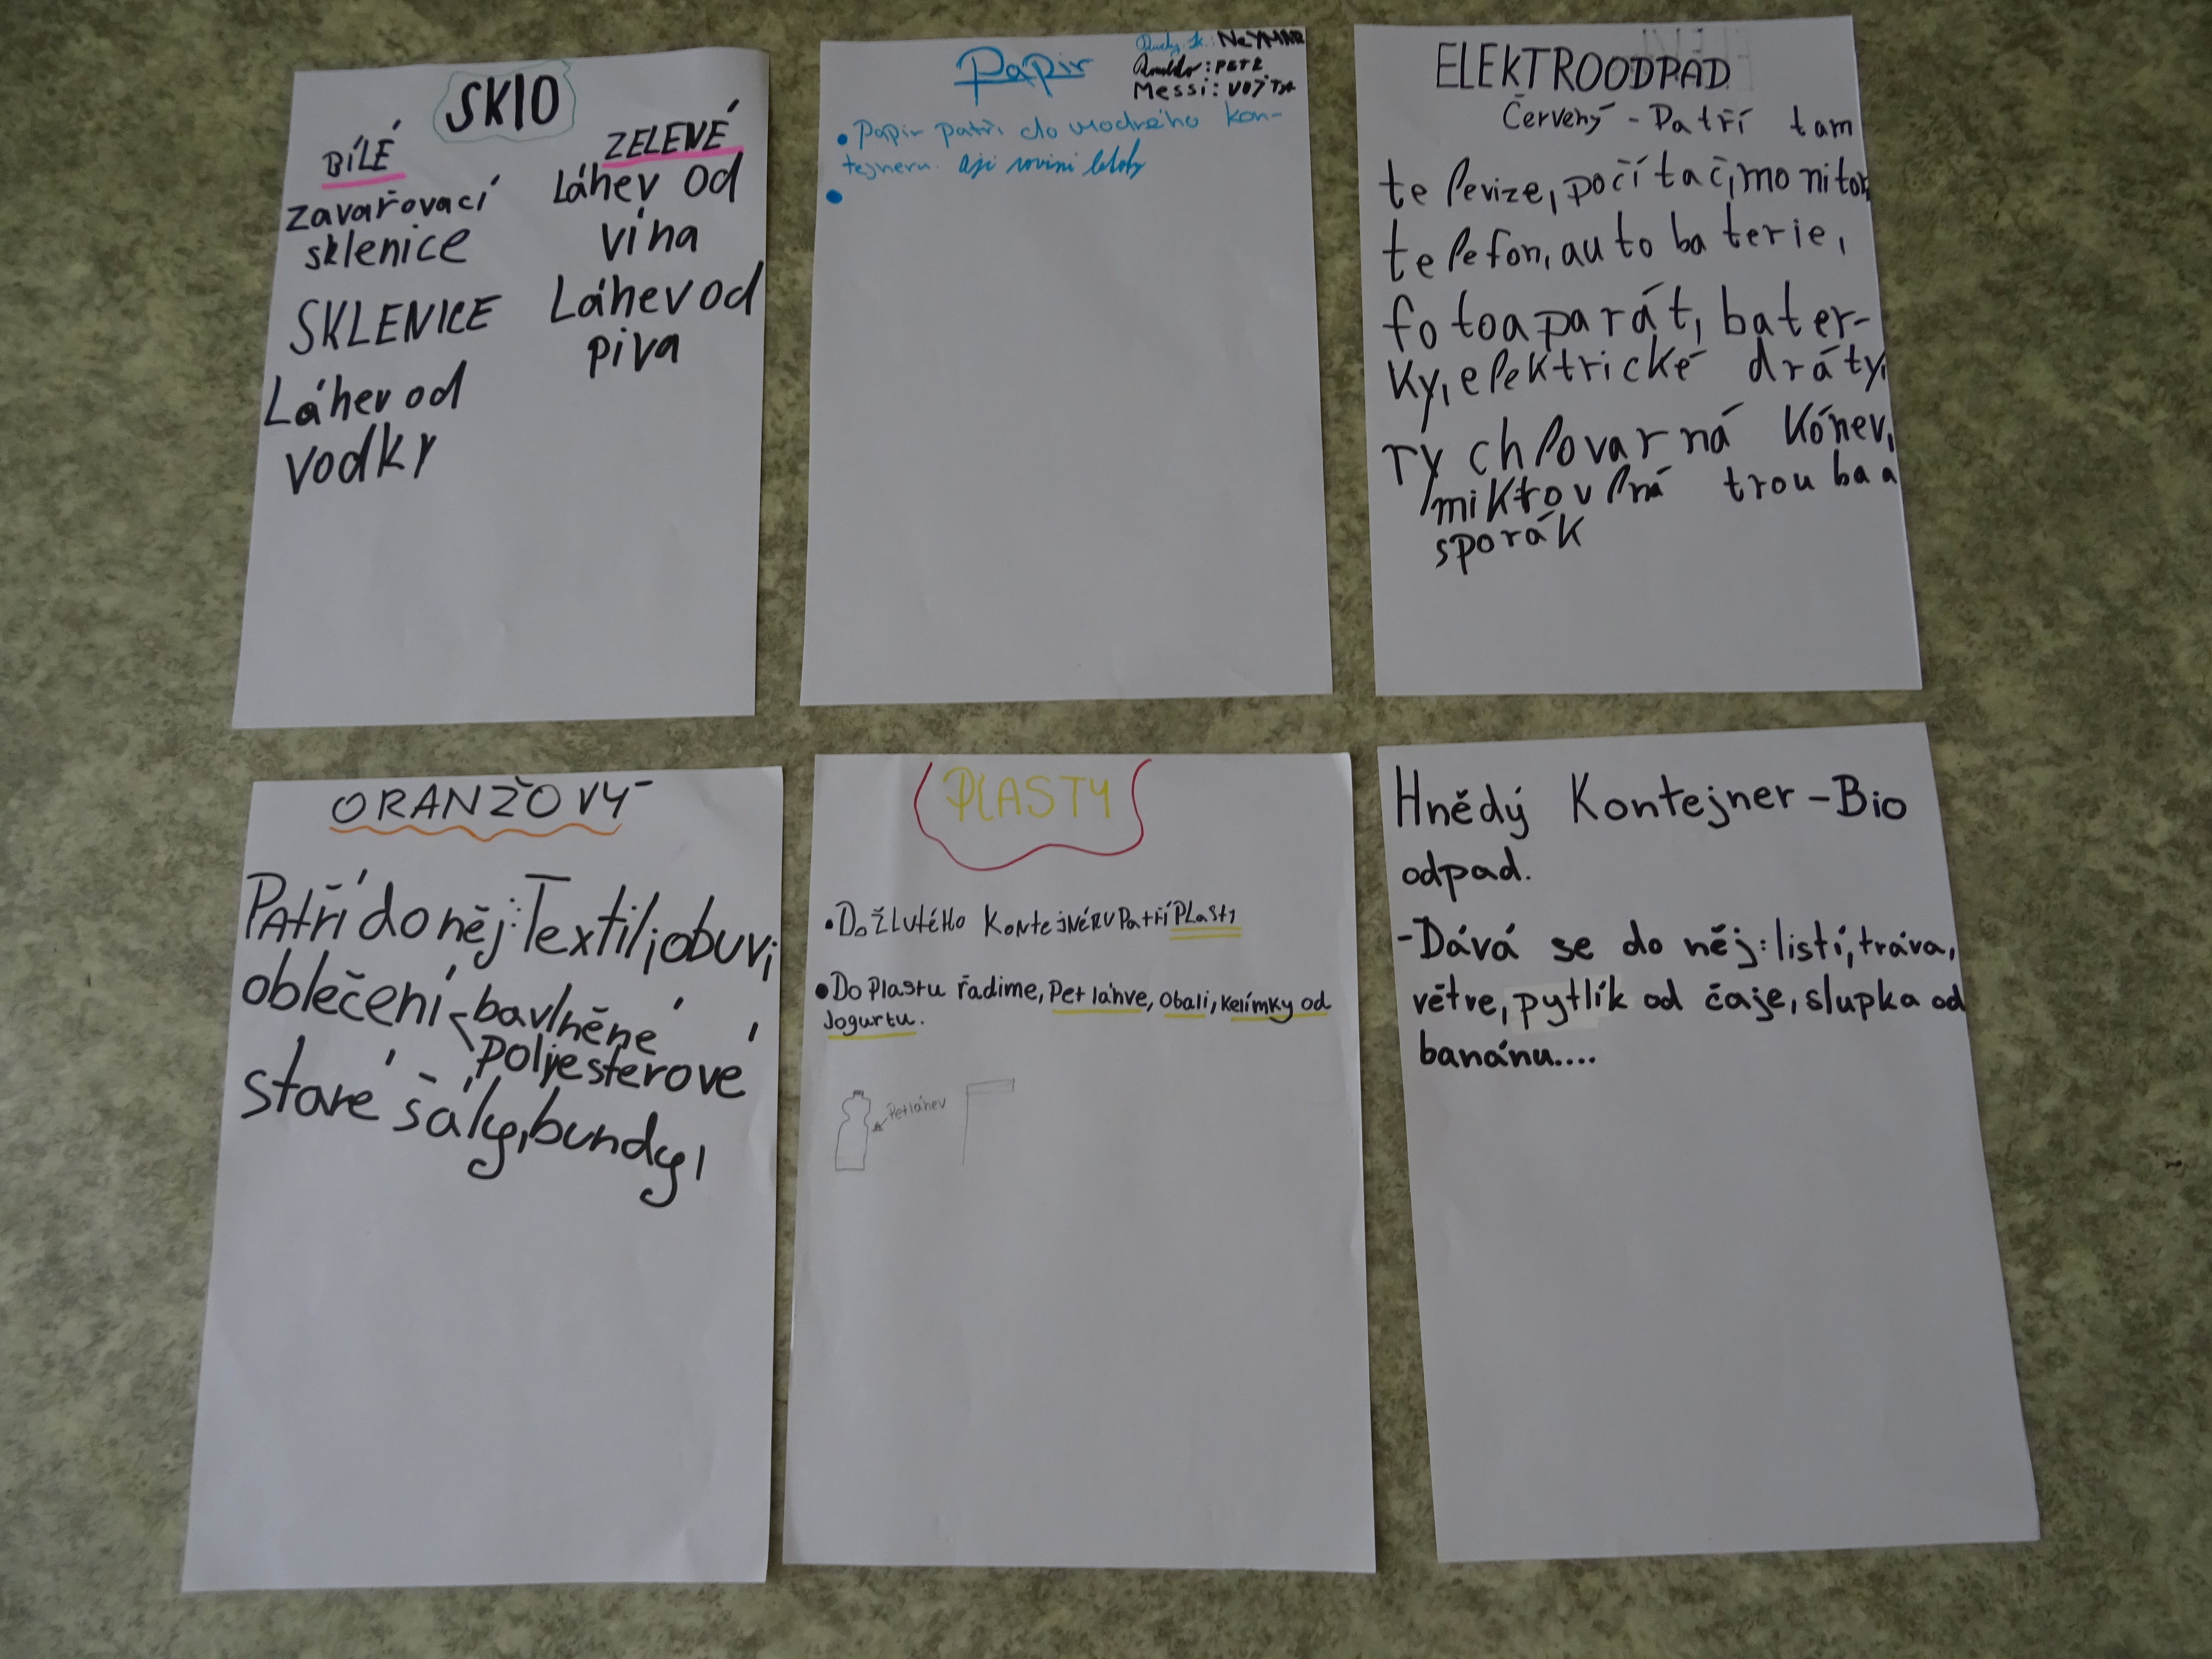 SKLO
BÍLÉ
zavařovací
sklenice
SKLENICE
Láhev od
vodky
ZELENÉ
Láhev od
vína
Láhev od
piva
Papír
NEYMAR
: PETR
Messi: VOJTA
• Papír patří do modrého kon-
tejneru.
ELEKTROODPAD
Červený - Patří tam
televize, počítač, monitor,
telefon, autobaterie,
fotoaparát, bater-
ky, elektrické dráty,
rychlovarná kónev,
mikrovlná trouba a
sporák
ORANŽOVÝ
Patří do něj: Textil, obuv,
oblečení bavlněné
polyesterové
staré šály, bundy,
PLASTY
• Do žlutého kontejnéru patří Plasty
• Do Plastu řadíme, Pet láhve, Obali, kelímky od
Jogurtu.
Petláhev
Hnědý Kontejner - Bio
odpad.
- Dává se do něj: listí, tráva,
větve, pytlík od čaje, slupka od
banánu....